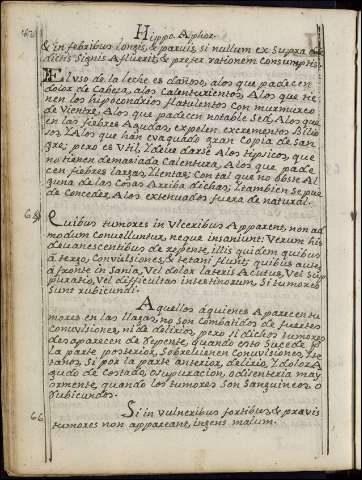 Hyppo. Aphor.
& in febribus longis, & paruis, si nullum ex Supra
dictis Signis Afluerit, & preter rationem Consumptis.
El vso de la leche es dañoso, alos que padecen
dolor de Cabeza, alos Calenturientos, Alos que tie-
nen los hipocondrios flatulentos con murmureo
de Vientre, Alos que padecen notable Sed, Alos que
en las fiebres Agudas, expelen excrementos Bilio
sos, Y Alos que han evaquado gran Copia de San
gre; pero es Vtil, Y deve darse Alos Tipsicos, que
no tienen demasiada Calentura, Alos que pade
cen fiebres largas, Y lentas; Con tal que no obste Al
guna de las Cosas Arriba dichas; Y tambien se pue
de Conceder, Alos extenuados fuera de natural.
65 Quibus tumores in Vlceribus Apparent, non ad
modum Convelluntur, neque insaniunt: Verum his
devanescentibus de repente, illis quidem quibus
á tergo, Convulsiones, & tetani fiunt; quibus autem
á fronte in Sania, Vel dolor lateris Acutus, Vel Sup
puratio, Vel difficultas intestinorum, Si tumores
Sunt rubicundi.
Aquellos áquienes Aparecen tu
mores en las llagas, no son Combatidos de fuertes
convulsiones, ni de delirios, pero si dichos tumores
desaparecen de repente, quando esto Sucede por
la parte posterior, Sobrevienen Convulsiones, Y te
tanos, Si por la parte anterior, delirio, Y dolor A
gudo de Costado, o supuracion, o disenteria may
ormente, quando los tumores Son Sanguineos o
rubicundos.
66 Si in vulneribus fortibus, & pravis
tumores non appareant, ingens malum.